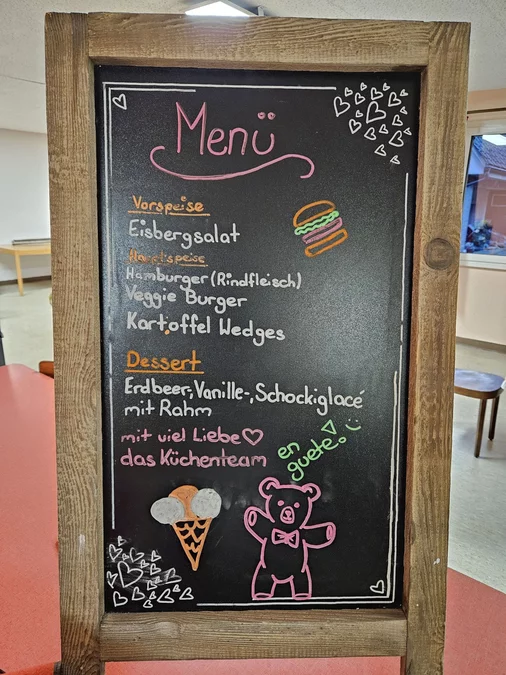 Menü
Vorspeise
Eisbergsalat
Hauptspeise
Hamburger (Rindfleisch)
Veggie Burger
Kartoffel Wedges
Dessert
Erdbeer-, Vanille-, Schockiglacé
mit Rahm
mit viel Liebe♡
das Küchenteam
en
guete!